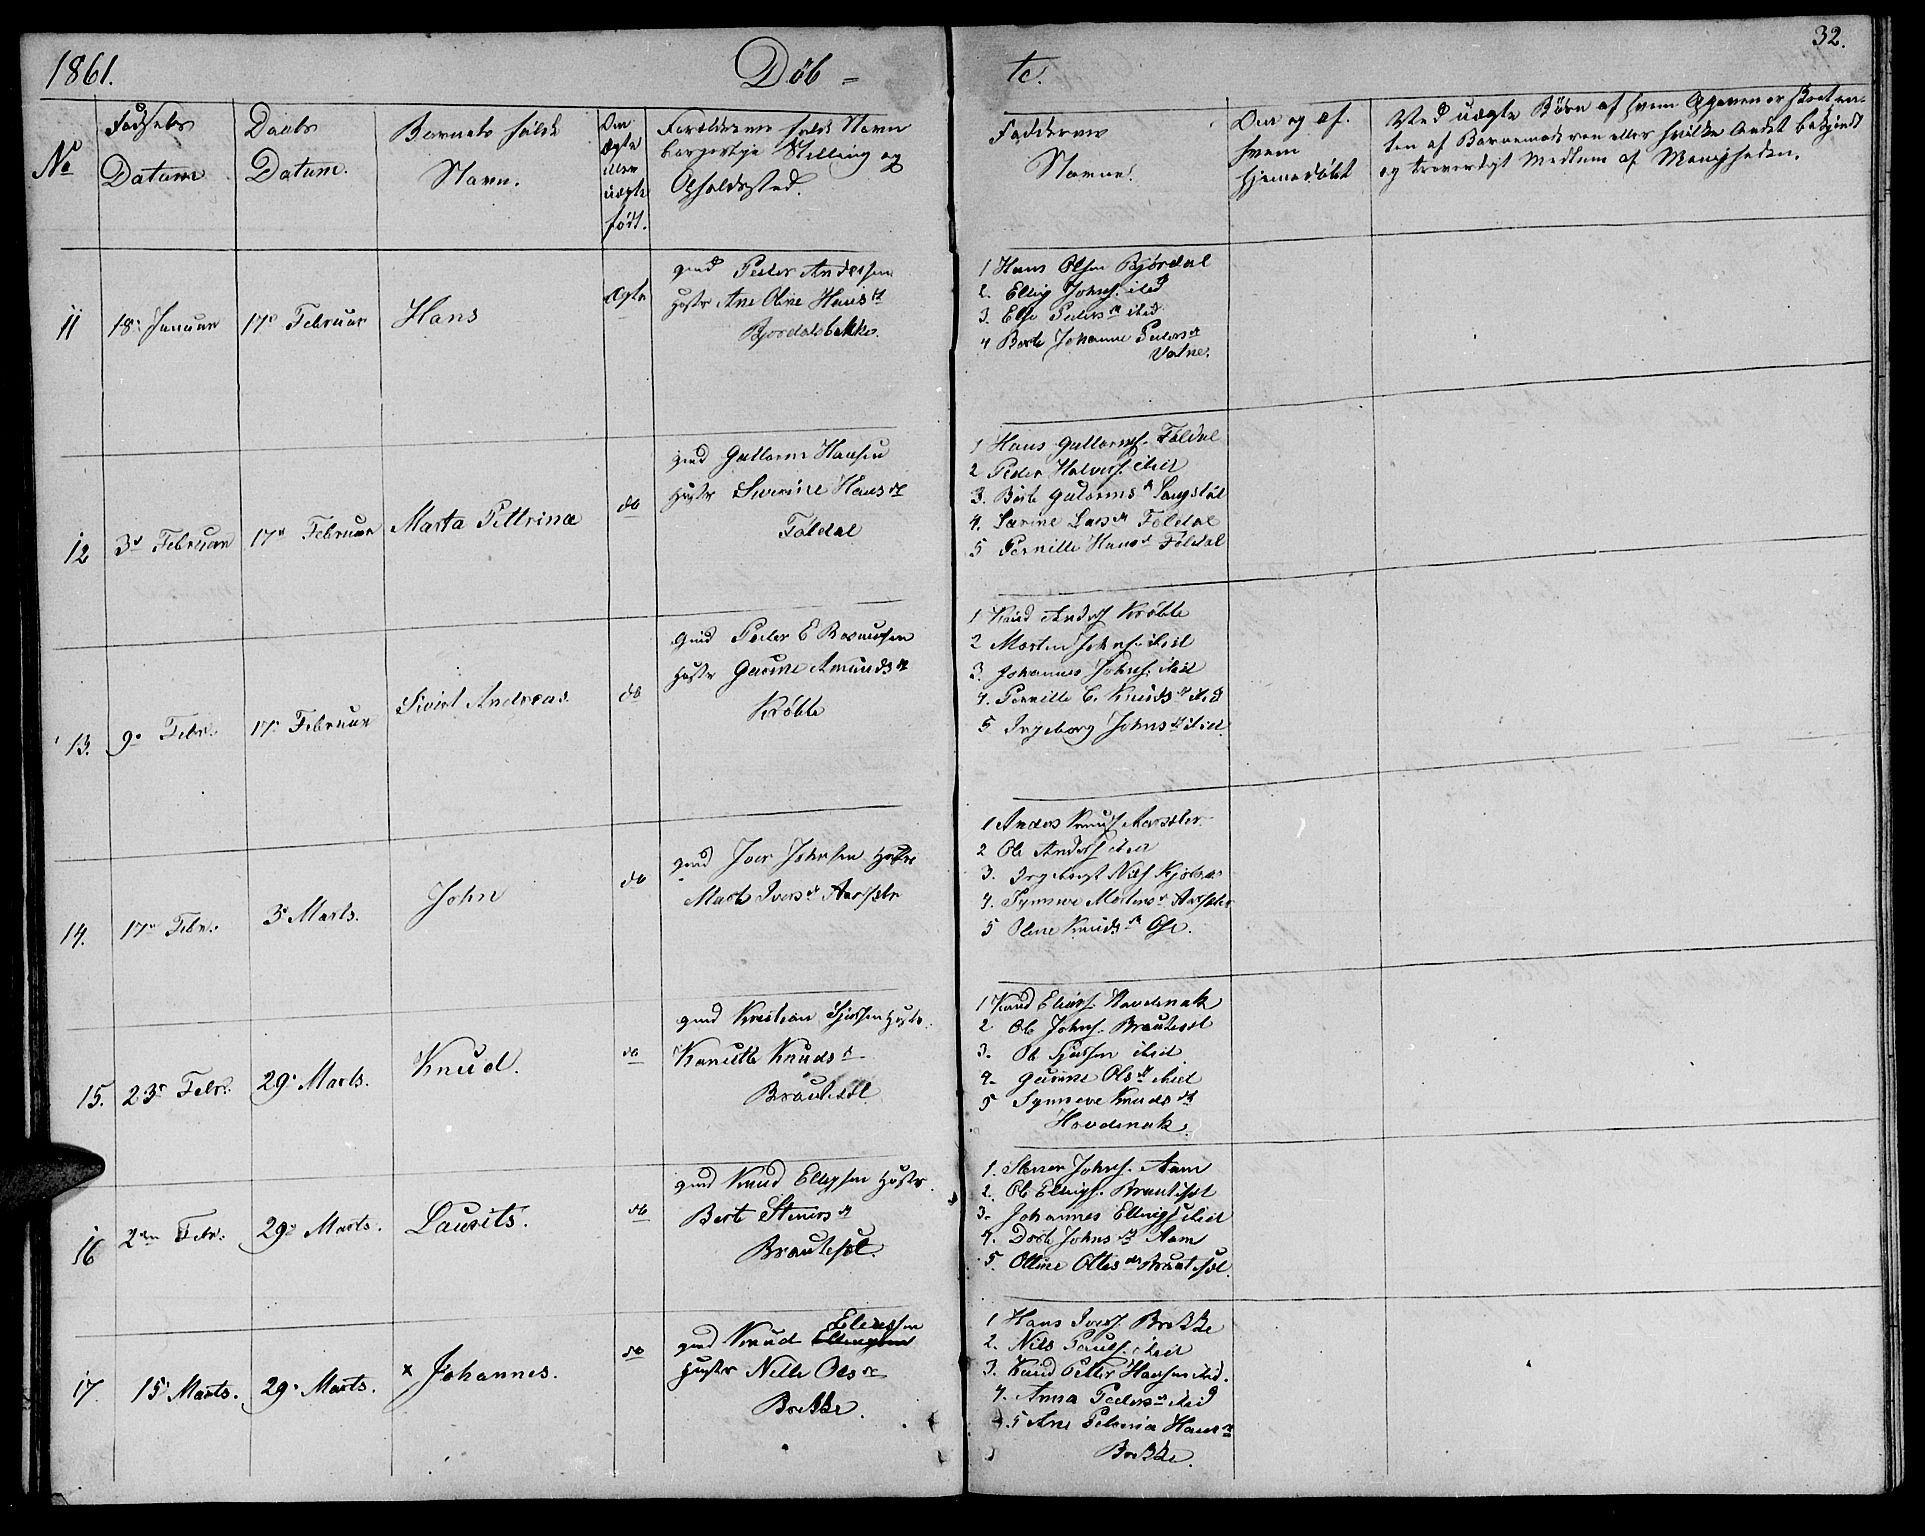 1861.
Døb-
te.
32.
No
Fødsels
Datum
Daabs
Datum.
Barnets fulde
Navn.
Om
Ægte
eller
uægte
født.
Forældrenes fulde Navn
borgerlige Stilling og
Opholdssted.
Faddernes
Navne.
Om og af
hvem
hjemmedøbt
Ved uægte Børn af hvem Opgaven er skeet en-
ten af Barnemoderen eller hvilke Andet bekjendt
og troværdigt Medlem af Menigheden.
11
18. Januar
17de Februar
Hans
Ægte
gmd Peder Andersen
Hustr Ane Oline Hansdr
Bjordalsbakke.
1 Hans Olsen Bjørdal
2. Elling Johns. ibid
3. Else Pedersdr ibid.
4 Berte Johanne Pedersdr
Vatne.
12
3de Februar
17de Februar
Marta Pettrine
do
gmd Guttorm Hansen
Hustr Severine Hansdr
Føldal
1 Hans Guttorms. Føldal
2 Peder Halvors. ibid
3. Berte Gutormsdr
4. Larsdr Føldal
5 Pernille Hansdr Føldal
13.
9de Febr.
17de Februar
Sivert Andreas.
do
gmd Peder E Rasmussen
Hustr Gurine Amundsdr
Krøbte
1 Knud Anders Krøbte
2 Morten Johns. ibid
3. Johannes Johns. ibid
4. Pernille C. Knudsdr ibid
5 Ingeborg Johnsdr ibid.
14.
17de Febr.
3de Marts.
John
do
gmd Iver Johnsen Hustr
Marte Iversdr Aarsæter
1 Anders Knuds Aarsæter
2 Ole Anders ibid
3. Nils
4. Synneve Aarsæter
5 Oline Knudsdr Ose.
15.
23de Febr.
29de Marts.
Knud.
do
gmd Kristian Sjursen Hustr.
Kanutte Knudsdr
Brautesæt
1 Knud Elias Hovdenak
2 Ole Johns. Brautesæt
3. Ole Sjursen ibid.
4. Gurine Olsdr ibid
5 Synneve Knudsdr
Hovdenak.
16
2den Febr.
29de Marts.
Laurits.
do
gmd Knud Ellingsen Hustr.
Berte Stenersdr
Brautesæt.
1. Stener Johns. Aam
2. Ole Ellings. Brautesæt
3. Johannes Ellings ibid
4. Dorte Johnsdr Aam
5. Olline Ottesdr Brautesæt.
17.
15de Marts.
29de Marts.
x Johannes.
do
Eliassen
gmd Knud Ellingsen
Hustr Nille Olsdr
Brekke.
1 Hans Ivers Brekke
2. Nils Pauls. ibid
3. Knud Petter Hansen ibid.
4. Anna Pedersdr ibid
5 Ane Hansdr
Brekke.